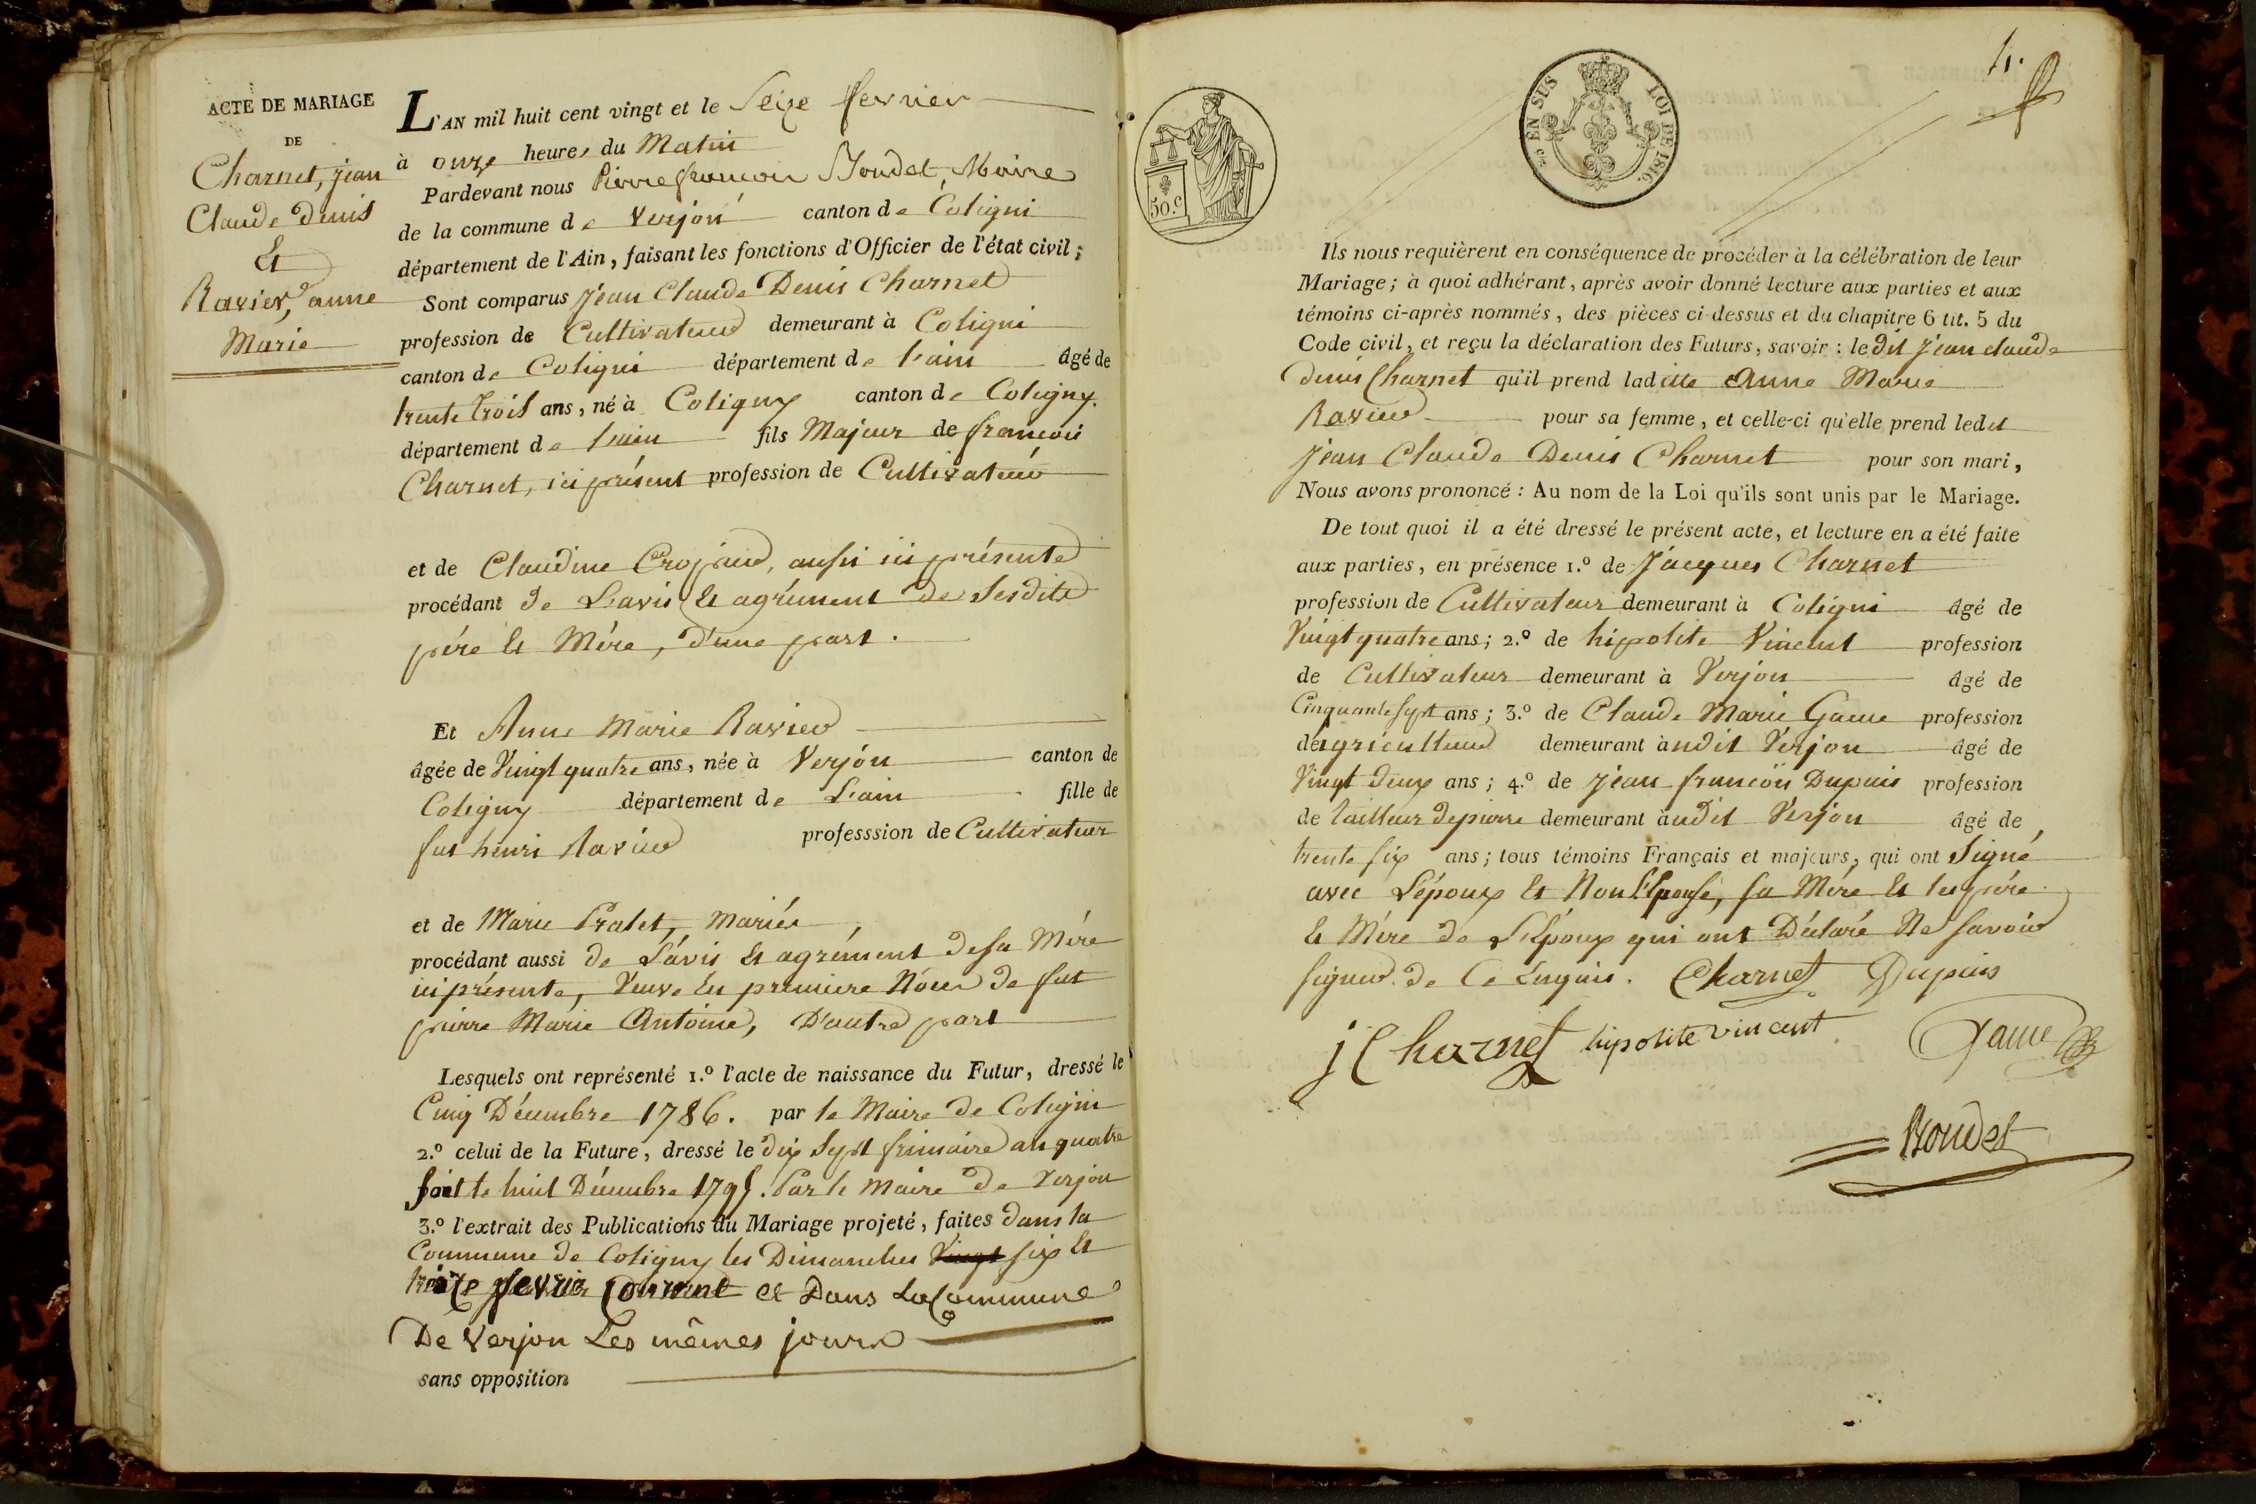 ACTE DE MARIAGE
DE
Charnet, jean
Claude denis
Et
Ravier, anne
Marie
L'AN mil huit cent vingt et le Seize fevrier
à onze heures du Matin
Pardevant nous Pierre francois Boudet, Maire
de la commune de Verjon canton de Coligni
département de l'Ain, faisant les fonctions d'Officier de l'état civil;
Sont comparus Jean Claude Denis Charnet
profession de Cultivateur demeurant à Coligni
canton de Coligni département de l'ain âgé de
trente trois ans, né à Coligny canton de Coligny.
département de l'ain fils Majeur de francois
Charnet, ici présent profession de Cultivateur
et de Claudine aussi ici présente
procédant de L'avis Et agrément de Sesdits
pére Et Mére, d'une part.
Et Anne Marie Ravier
âgée de Vingt quatre ans, née à Verjon canton de
Coligny département de L'ain fille de
fut henri Ravier professsion de Cultivateur
et de Marie Pralet, mariés,
procédant aussi de L'ávis Et agrément de sa Mére
ici présente, Veuve En premiere Nôces de fut
pierre Marie Antoine, D'autre part
Lesquels ont représenté 1.º l'acte de naissance du Futur, dressé le
Cinq Décembre 1786. par le Maire de Coligni
2.º celui de la Future, dressé le dix Sept frimaire an quatre
soit le huit Décembre 1795. Par le Maire de Verjon
3.º l'extrait des Publications du Mariage projeté, faites dans la
Commune de Coligny les Dimanches Vingt six Et
treize fevrier Courent et Dans La Commune
De Verjon Les mêmes jours
sans opposition
50.c
EN SUS
LOI DE 1816.
4.
Ils nous requièrent en conséquence de procéder à la célébration de leur
Mariage; à quoi adhérant, après avoir donné lecture aux parties et aux
témoins ci-après nommés, des pièces ci-dessus et du chapitre 6 tit. 5 du
Code civil, et reçu la déclaration des Futurs, savoir: le dit Jean claude
denis Charnet qu'il prend ladite Anne Marie
Ravier pour sa femme, et celle-ci qu'elle prend ledit
Jean Claude Denis Charnet pour son mari,
Nous avons prononcé: Au nom de la Loi qu'ils sont unis par le Mariage.
De tout quoi il a été dressé le présent acte, et lecture en a été faite
aux parties, en présence 1.º de Jacques Charnet
profession de Cultivateur demeurant à Coligni âgé de
Vingt quatre ans; 2.º de hipolite Vincent profession
de Cultivateur demeurant à Verjon âgé de
Cinquante sept ans; 3.º de Claude Marie Game profession
de agriculteur demeurant à udit Verjon âgé de
Vingt deux ans; 4.º de jean francois Dupuis profession
de tailleur de pierre demeurant à udit Verjon âgé de
trente six ans; tous témoins Français et majeurs, qui ont Signé
avec L'époux Et Non L'Epouse, sa Mére Et les pére
Et Mére de L'Epoux qui ont Déclaré Ne Savoir
signer. de Ce Enquis. Charnet Dupuis
j Charnet hipolite vincent Game
Boudet